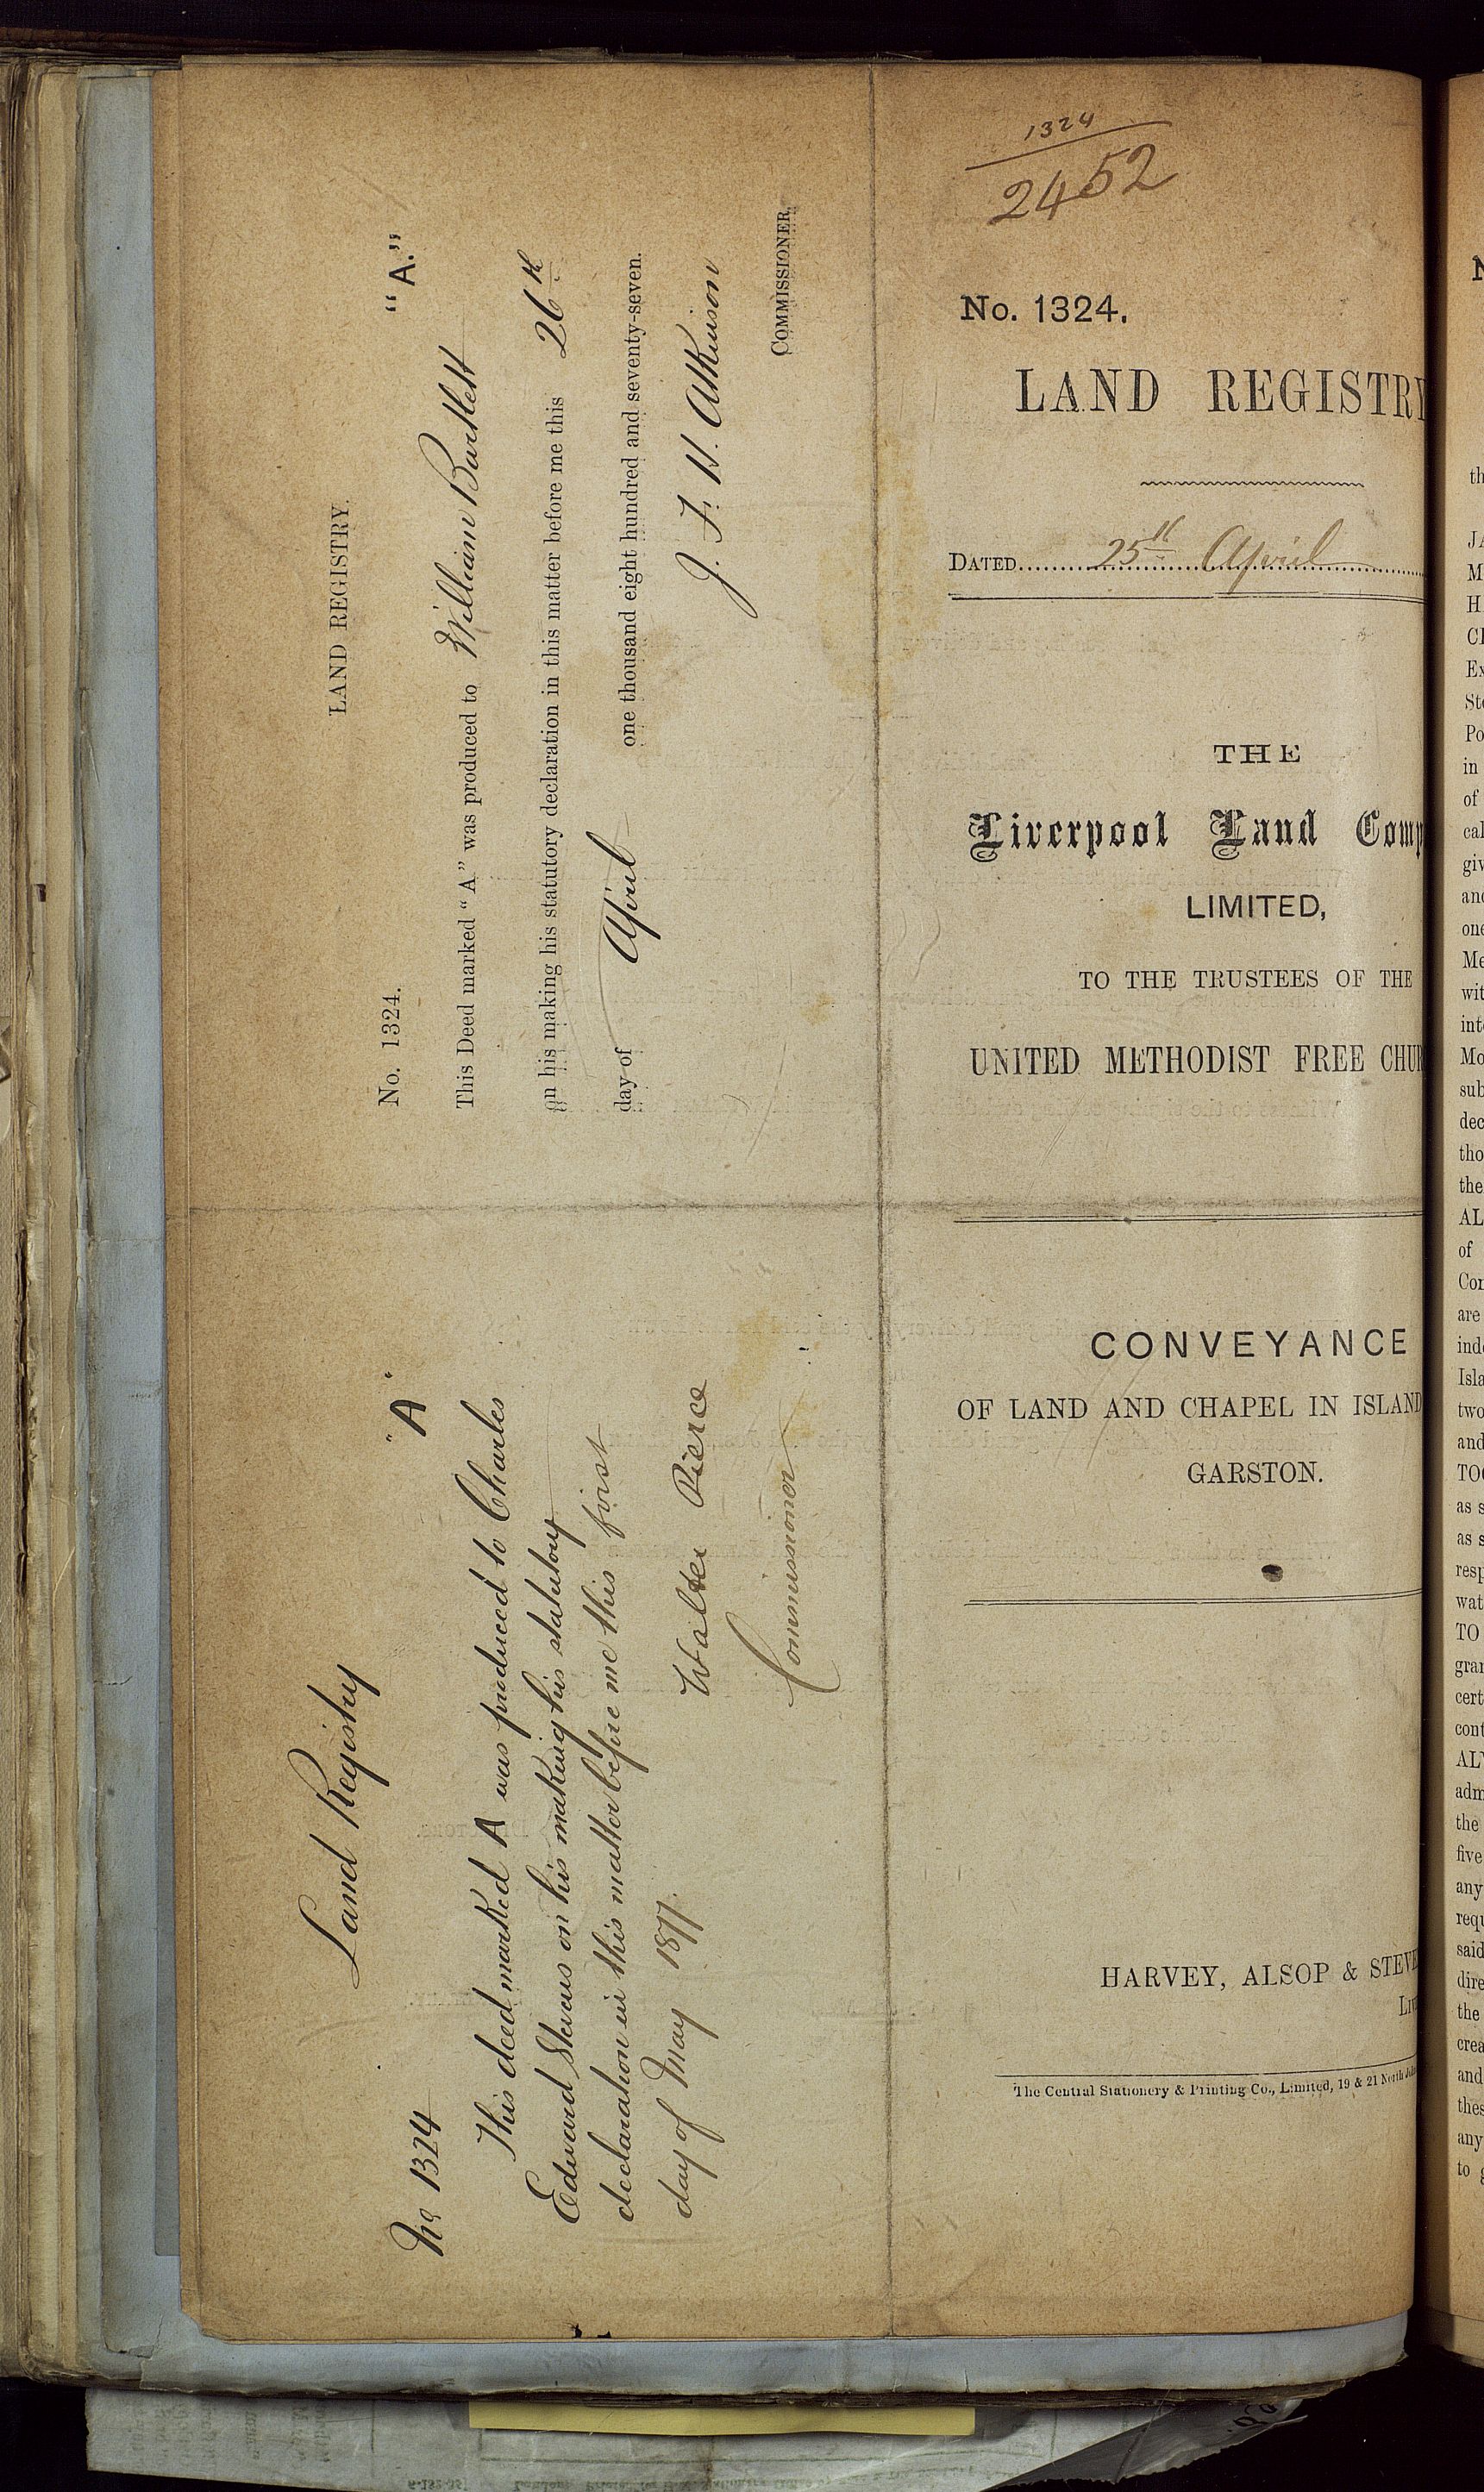 1324
2452
No. 1324.
LAND REGISTRY
DATED 25th April
THE
Liverpool Land Comp
LIMITED,
TO THE TRUSTEES OF THE
UNITED METHODIST FREE CHUR
CONVEYANCE
OF LAND AND CHAPEL IN ISLAND
GARSTON.
HARVEY, ALSOP & STEVE
Liv
The Central Stationery & Printing Co., Limited, 19 & 21 North Joh
LAND REGISTRY.
No. 1324. "A."
This Deed marked "A" was produced to William Bartlett
on his making his statutory declaration in this matter before me this 26th
day of April one thousand eight hundred and seventy-seven.
J. F. H. Atkinson
COMMISSIONER.
Land Registry
No 1324 "A"
This deed marked A was produced to Charles
Edward Stevens on his making his statutory
declaration in this matter before me this first
day of May 1877.
Walter Pierce
Commissioner
th
JA
M
H
Cl
Ex
Ste
Po
in
of
cal
giv
and
one
Me
wit
int
Mo
sub
dec
tho
the
AL
of
Con
are
ind
Isla
two
and
TOG
as s
as s
resp
wat
TO
gran
cert
cont
ALW
adm
the
five
any
requ
said
dire
the
crea
and
thes
any
to g